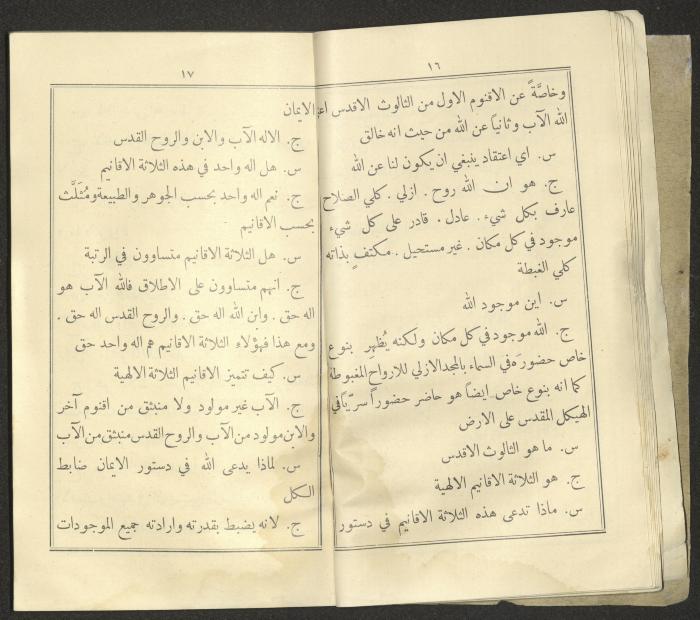 ١٦
وخاصَّةً عن الاقنوم الاول من الثالوث الاقدس اعني
الله الآب وثانياً عن الله من حيث انه خالق
س. اي اعتقاد ينبغي ان يكون لنا عن الله
ج. هو ان الله روح. ازلي. كلي الصلاح
عارف بكل شيء. عادل. قادر على كل شيء
موجود في كل مكان. غير مستحيل. مكتفٍ بذاته
كلي الغبطة
س. اين موجود الله
ج. الله موجود في كل مكان ولكنه يُظهر بنوع
خاص حضوره في السماء بالمجد الازلي للارواح المغبوطة
كما انه بنوع خاص ايضاً هو حاضر حضوراً سرّيّاً في
الهيكل المقدس على الارض
س. ما هو الثالوث الاقدس
ج. هو الثلاثة الاقانيم الالهية
س. ماذا تدعى هذه الثلاثة الاقانيم في دستور
١٧
الايمان
ج. الاله الآب والابن والروح القدس
س. هل اله واحد في هذه الثلاثة الاقانيم
ج. نعم اله واحد بحسب الجوهر والطبيعة ومُثلَّث
بحسب الاقانيم
س. هل الثلاثة الاقانيم متساوون في الرتبة
ج. انهم متساوون على الاطلاق فالله الآب هو
اله حق. وابن الله اله حق. والروح القدس اله حق.
ومع هذا فهؤلاء الثلاثة الاقانيم هم اله واحد حق
س. كيف تتميز الاقانيم الثلاثة الالهية
ج. الآب غير مولود ولا منبثق من اقنوم آخر
والابن مولود من الآب والروح القدس منبثق من الآب
س. لماذا يدعى الله في دستور الايمان ضابط
الكل
ج. لانه يضبط بقدرته وارادته جميع الموجودات